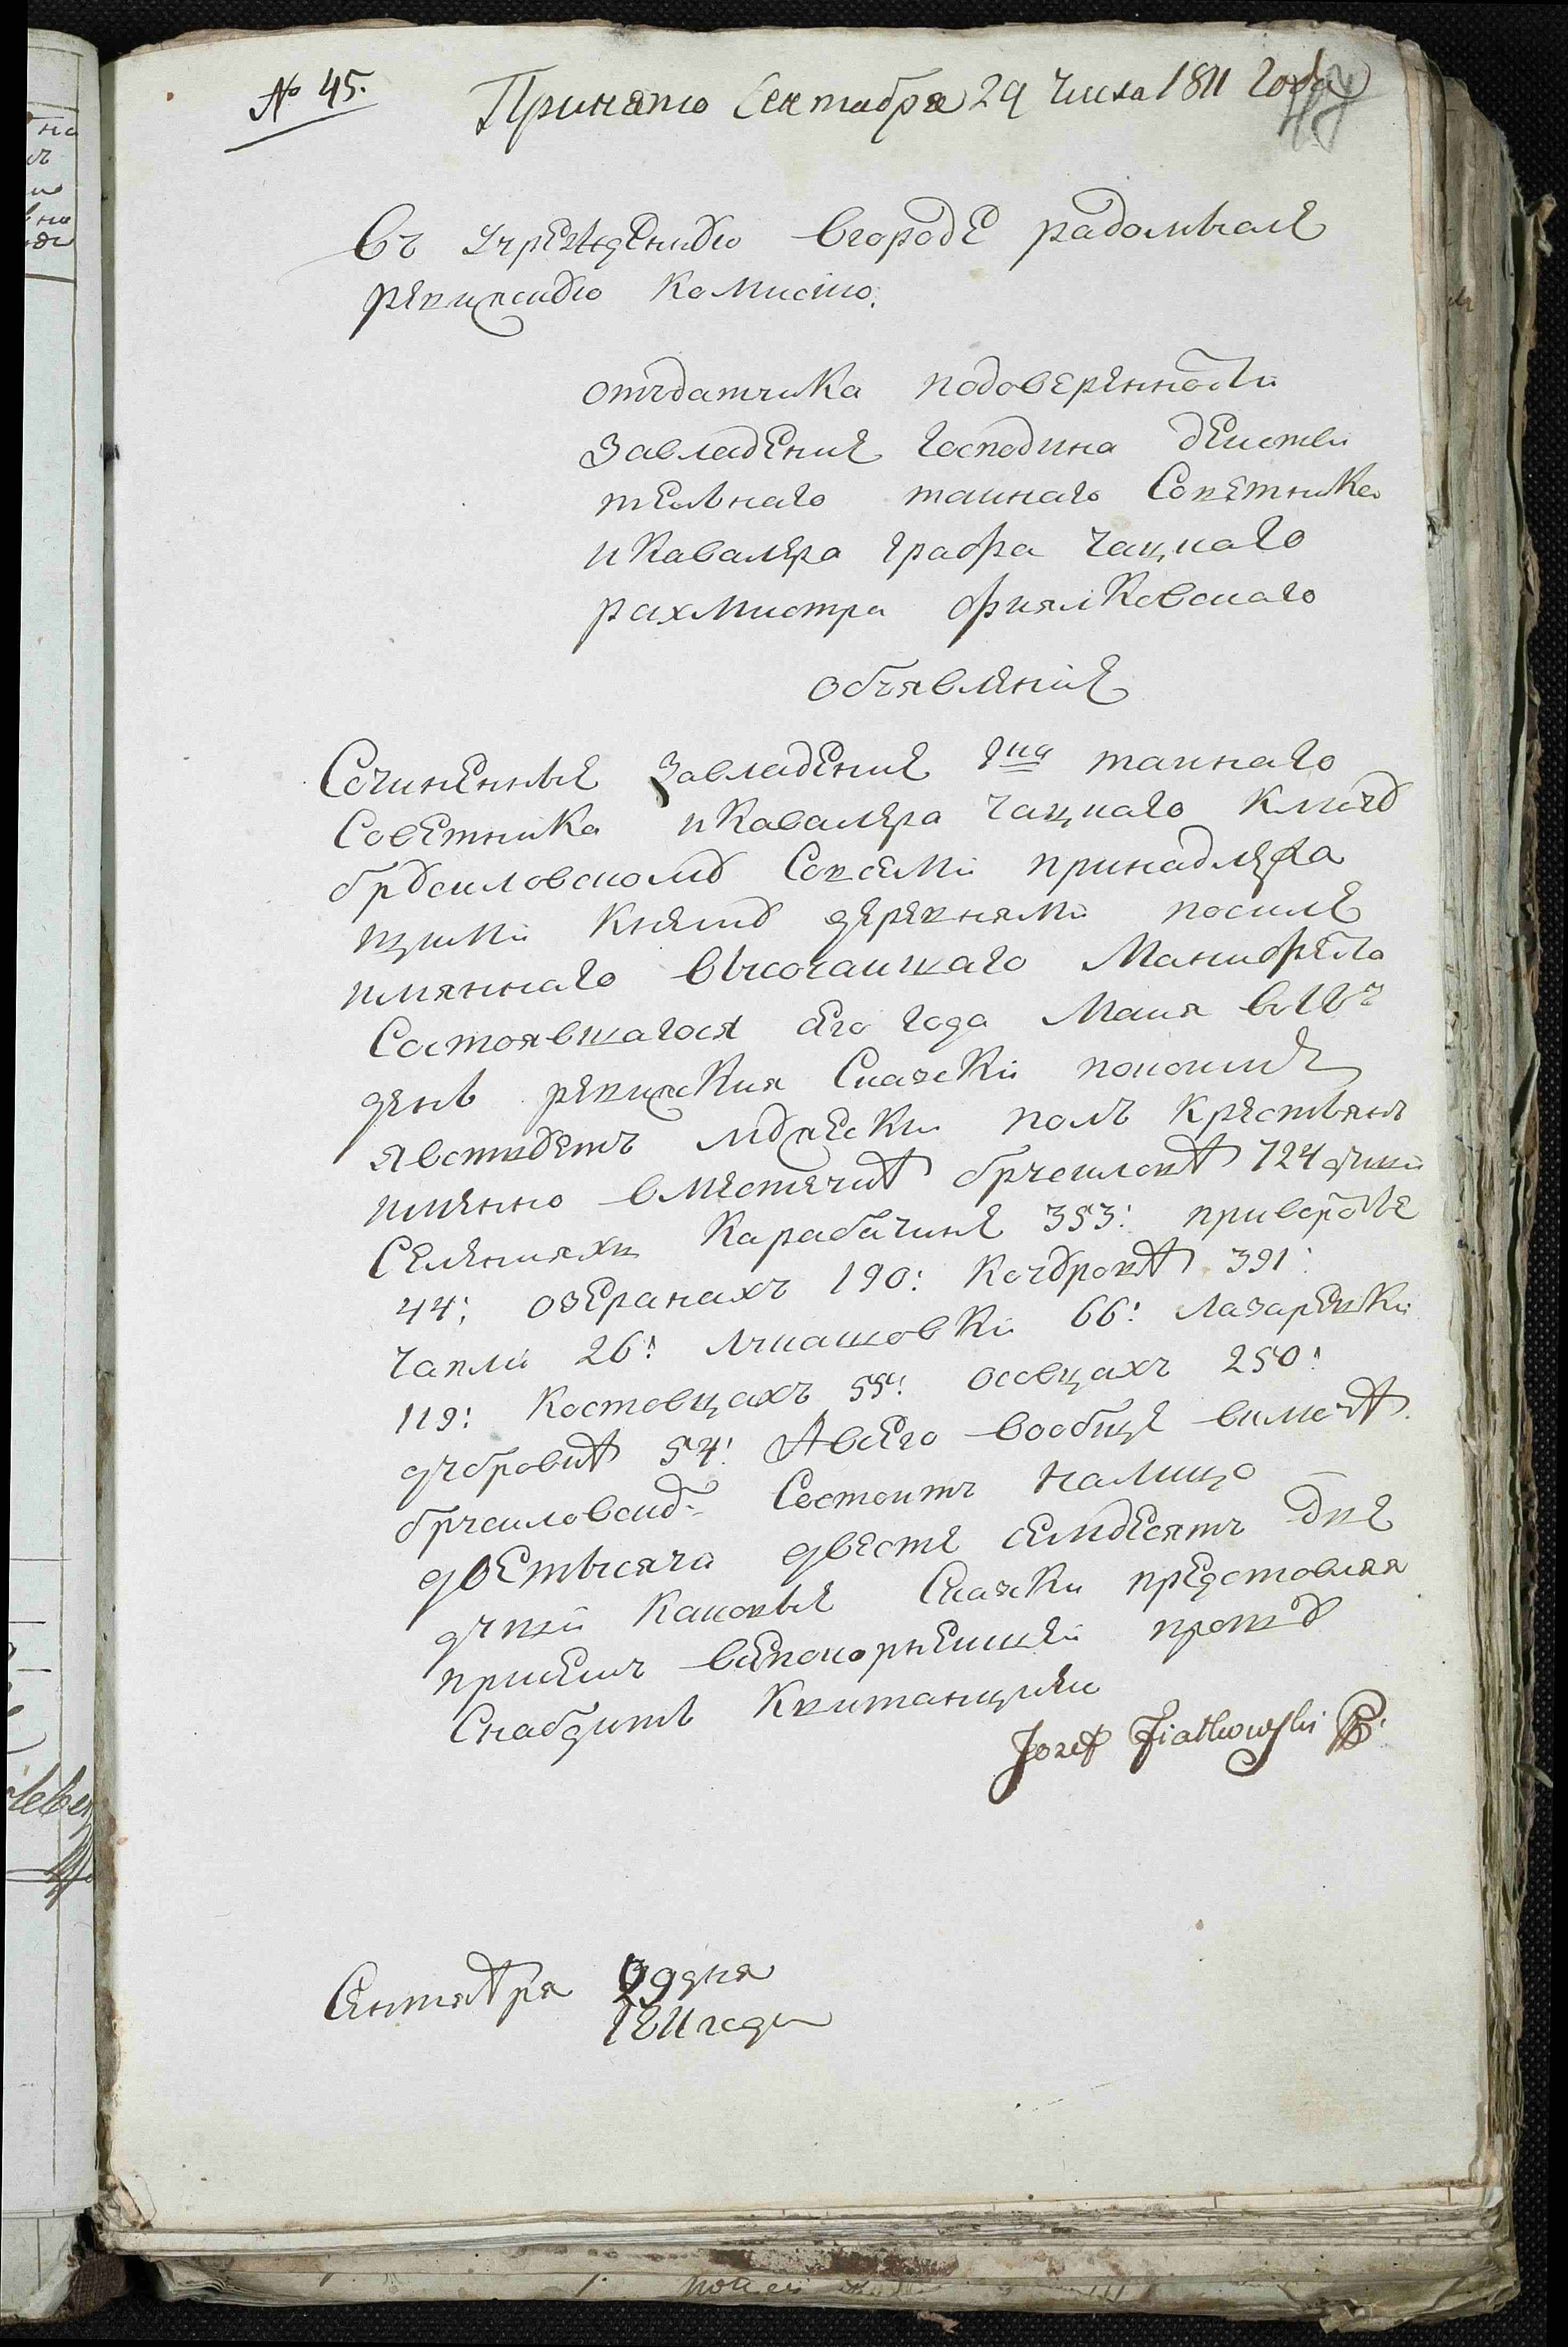 № 45.
Принято Сентября 29 числа 1811 года
въ учрежденную вгороде радомысле
ревизскую комисию.
отъдатчика подоверенности
завладение господина действи
тельнаго тайнаго Советника
икавалера графа чацкаго
рахмистра фиялковскаго
объявление
Сочиненные завладение гна тайнаго
Советника икавалера чацкаго ключу
брусиловскому Совсеми принадлежа
щими кнему деревнями посиле
имяннаго высочайшаго Манифеста
Состоявшагося сего года Маия в18ъ
день ревизския Сказски покоимъ
явствуетъ мужески полъ крестьянъ
имянно вместечке бръсилове 724 души
Селенияхъ карабачине 353: приворотье
44: озеранахъ 190: кочурове 391:
чапли 26! лъчашовки 66! лазаревки
119: костовцахъ 55! осовцахъ 250!
дубровке 54! Авсего вообще включе
бръсиловску- Состоитъ налицо
дветысяча двести семдесятъ две
душъ каковые Сказки представляя
присемъ всепокорнейшей прошу
Снабдить квитанциеи
Jozef Fiałkowski
Сентября 29 дня
1811 года